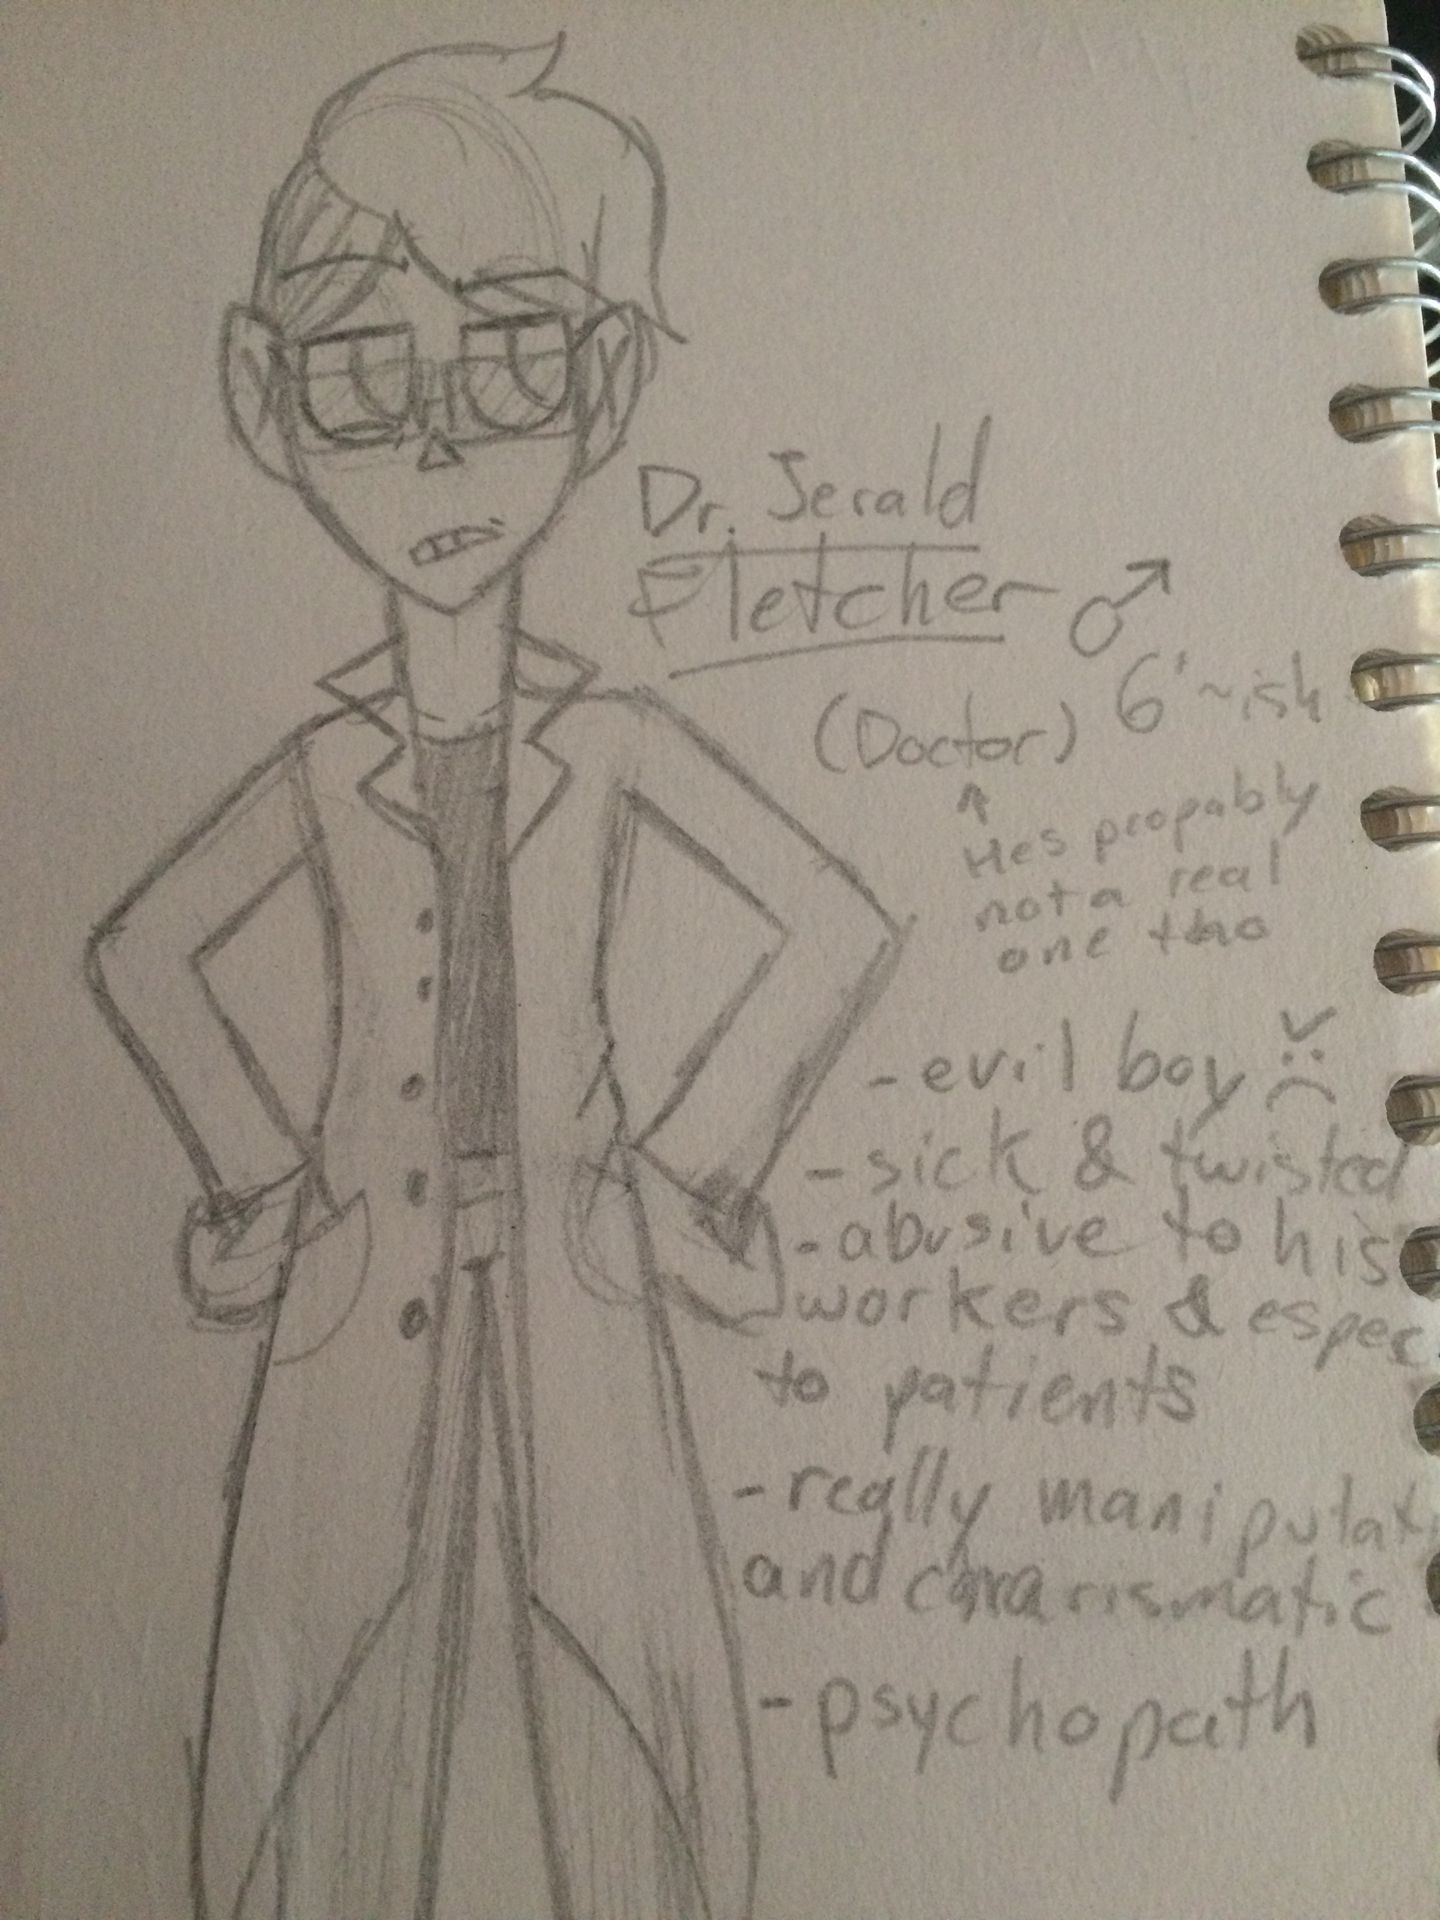 Dr. Jerald
Fletcher ♂
(Doctor) 6' ~ish
↑
Hes propably
not a real
one tho
- evil boy
- sick & twisted
- abusive to his
workers & espec
to patients
- really manipulati
and charismatic
- psychopath